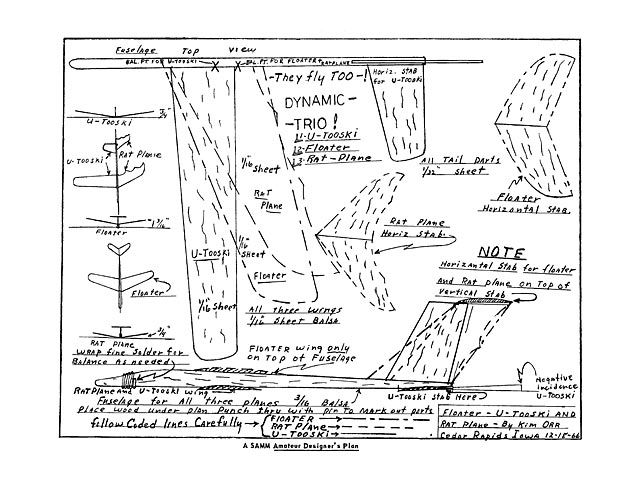 Fuselage Top View
BAL. PT FOR U-TOOSKI BAL. PT. FOR FLOATER & RAT PLANE
-They fly TOO-!
DYNAMIC-
-TRIO!
1-U-TOOSKI
2-Floater
3-Rat-Plane
Horiz. STAB
for U-TOOSKI
All Tail parts
1/32" sheet
Floater
Horizontal Stab.
3/4"
U-TOOSKI
U-TOOSKI
Rat Plane
1 3/16"
Floater
Floater
3/4"
RAT Plane
1/16 Sheet
RAT
Plane
1/16
Sheet
U-TOOSKI
Floater
1/16 Sheet
All Three wings
1/16 Sheet Balsa
Rat Plane
Horiz Stab.
NOTE
Horizontal Stab for floater
And Rat plane on Top of
Vertical Stab
WRAP fine Solder for
Balance As needed
FLOATER wing only
on Top of Fuselage
Rat Plane and U-Tooski wing
U-TOOSKI Stab Here
Negative
incidence
U-TOOSKI
Fuselage for All Three planes 3/16 Balsa
Place wood under plan Punch thru with pin To mark out parts
follow Coded lines Carefully
FLOATER
RAT Plane
U-TOOSKI
Floater - U-TOOSKI AND
RAT Plane - By Kim ORR
Cedar Rapids Iowa 12-18-66
A SAMM Amateur Designer's Plan